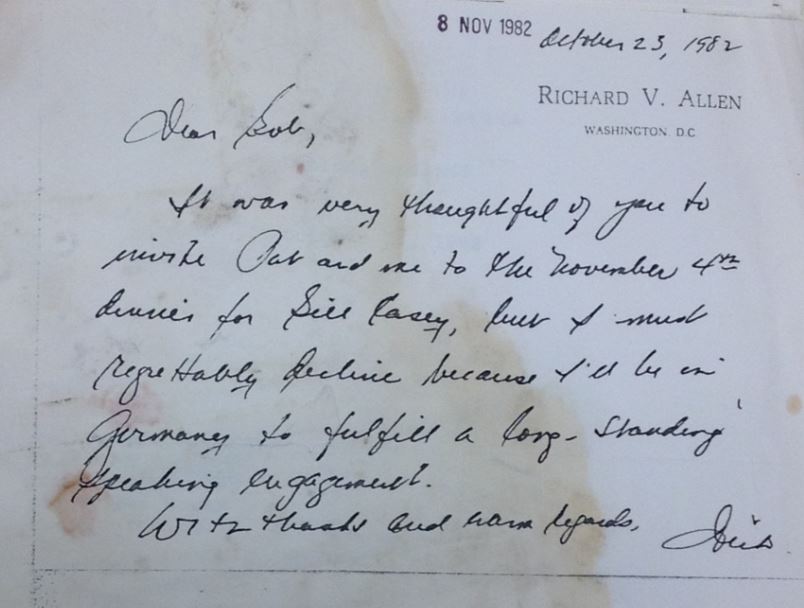 8 NOV 1982 October 23, 1982
RICHARD V. ALLEN
WASHINGTON D.C
Dear Bob,
It was very thoughtful of you to
invite Pat and me to the November 4th
dinner for Bill Casey, but I must
regrettably decline because I'll be in
Germany to fulfill a long-standing
speaking engagement.
With thanks and warm regards, Dick